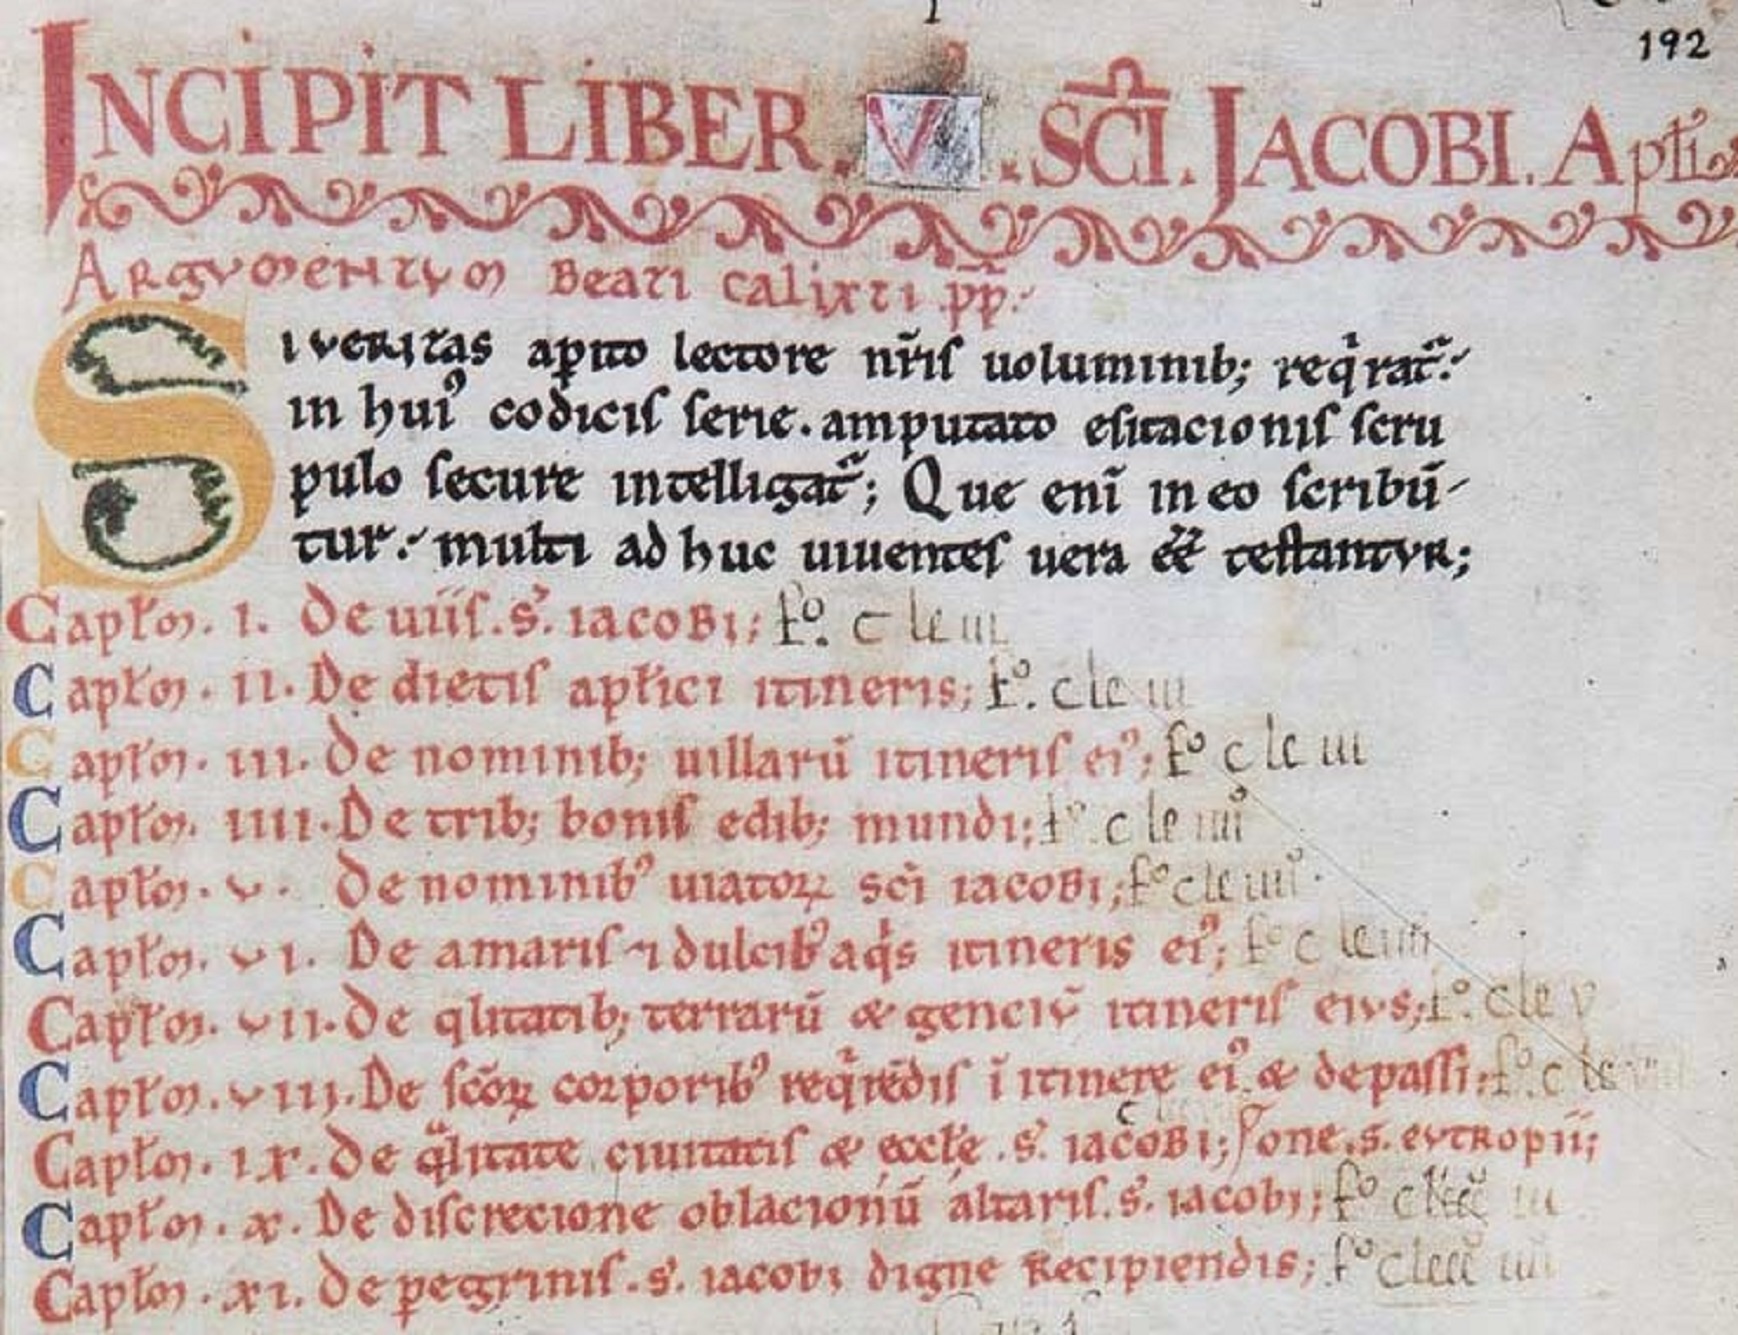 192
INCIPIT LIBER . V . SC̄I. JACOBI. Aptł̄i
Argumentum Beati calixti p̄p̄.
Si veritas aperito lectore nr̄is uoluminib; reqͥrat᷑.
in huiꝰ codicis serie. amputato esitacionis scru
pulo secure intelligat᷑; Que enī in eo scribū-
tur. multi ad huc uiuentes uera eē̄ testantur;
Capłm. I. De uiis. s̕. iacobi; fº. c le iii
Capłm. II. De dietis apłici itineris; fº. c le iii
Capłm. III. De nominib; uillarū itineris eiꝰ; fº c le iii
Capłm. IIII. De trib; bonis edib; mundi; fº. c le iiii
Capłm. V. De nominibꝰ uiatoꝝ sc̄i iacobi; fº c le iiii
Capłm. VI. De amaris ⁊ dulcibꝰ aqͥs itineris eiꝰ; fº c le iiii
Capłm. VII. De qlitatib; terrarū & genciū itineris eius; fº. c le v
Capłm. VIII. De sc̄oꝝ corporibꝰ reqͥrēdis ī itinere eiꝰ & de passi: fº. c le
one. s. eutropii;
Capłm. IX. De qᷓlitate ciuitatis & eccłe. s̕. iacobi;
Capłm. X. De discrecione oblacionū altaris. s̕. iacobi; fº
Capłm. XI. De ꝑegrinis. s̕. iacobi digne recipiendis; fº